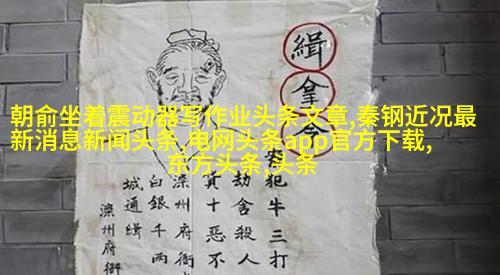 朝俞坐着震动器写作业头条文章,秦钢近况最
新消息新闻头条,电网头条app官方下载,
东方头条,头条
緝拿令
犯牛三打
劫舍殺人
真十惡不
滦州府衙
白銀千两
城通緝
滦州府衙